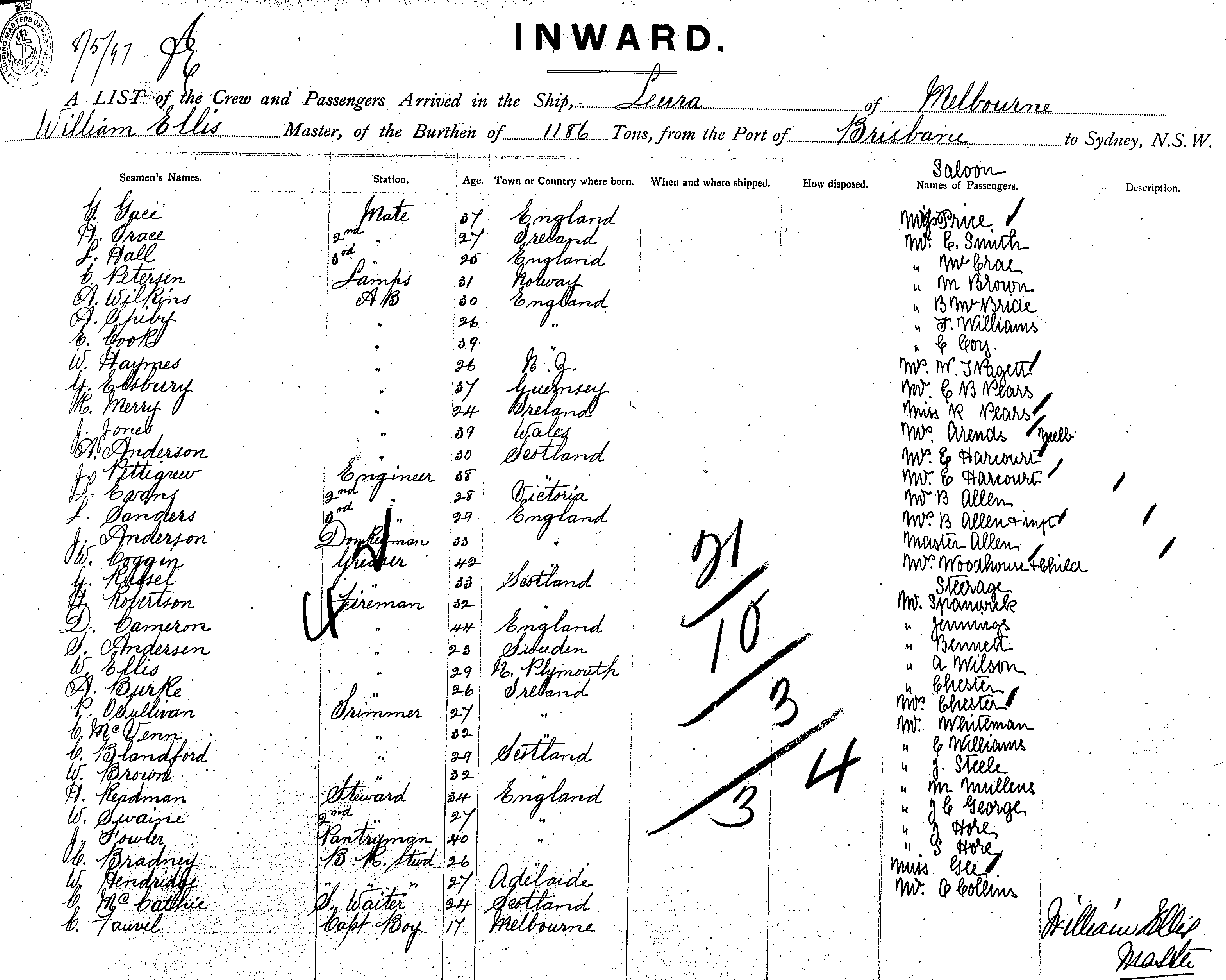 8/5/97
INWARD.
A LIST of the Crew and Passengers Arrived in the Ship, Leura of Melbourne
William Ellis Master, of the Burthen of 1186 Tons, from the Port of Brisbane to Sydney, N.S.W.
Saloon
Seamen's Names. Station. Age. Town or Country where born. When and where shipped. How disposed. Names of Passengers. Description.
Mate 37 England Price
H. Grace 2nd " 27 Ireland Mr. E. Smith
L. Hall 3rd " 25 England " McCrae
C. Petersen Lamps 31 Norway " M Brown
A. Wilkins A B 30 England " B McBride
" 26 " " F. Williams
E. Cook " 39 " C Coy.
W. Haymes " 26 N.Z. Mr. W.
G. Elsbury " 37 Guernsey Mr. E B Pears
R. Merry " 24 Ireland Miss K Pears
J. Jones " 39 Wales Mrs. Arends Melb
A. Anderson " 30 Scotland Mr. E Harcourt
J. Pettigrew Engineer 38 " Mr. E Harcourt
D. Evans 2nd " 28 Victoria Mr B Allen
L. Sanders 3rd " 29 England Mrs B Allen + inft
J. Anderson Donkeyman 33 " Master Allen
W. Coggin Greaser 42 Mrs Woodhouse + Child
G. Russel 33 Scotland Steerage
H. Robertson Fireman 32 Mr.
D. Cameron " 44 England " Jennings
S. Andersen " 23 Sweden " Bennett
W. Ellis " 29 N. Plymouth " A Wilson
A. Burke " 26 Ireland " Chester
P. OSullivan Trimmer 27 " Mrs Chester
C. McVenn " 32 Mr. Whiteman
C. Blandford " 29 Scotland " C Williams
W. Brown 32 " J. Steele
H. Readman Steward 34 England " M Mullens
W. Swaine 2nd " 27 " J C George
J. Fowler Pantryman 40 " " J Hore
C. Bradney B. R. Stwd 26 " S Hore
W. Hendridge 27 Adelaide Miss Gee
C. McCatchie "S. Waiter" 24 Scotland Mr. C Collins
C. Fauvel Capt Boy 17 Melbourne
4
21
10
3
3
4
William Ellis
Master